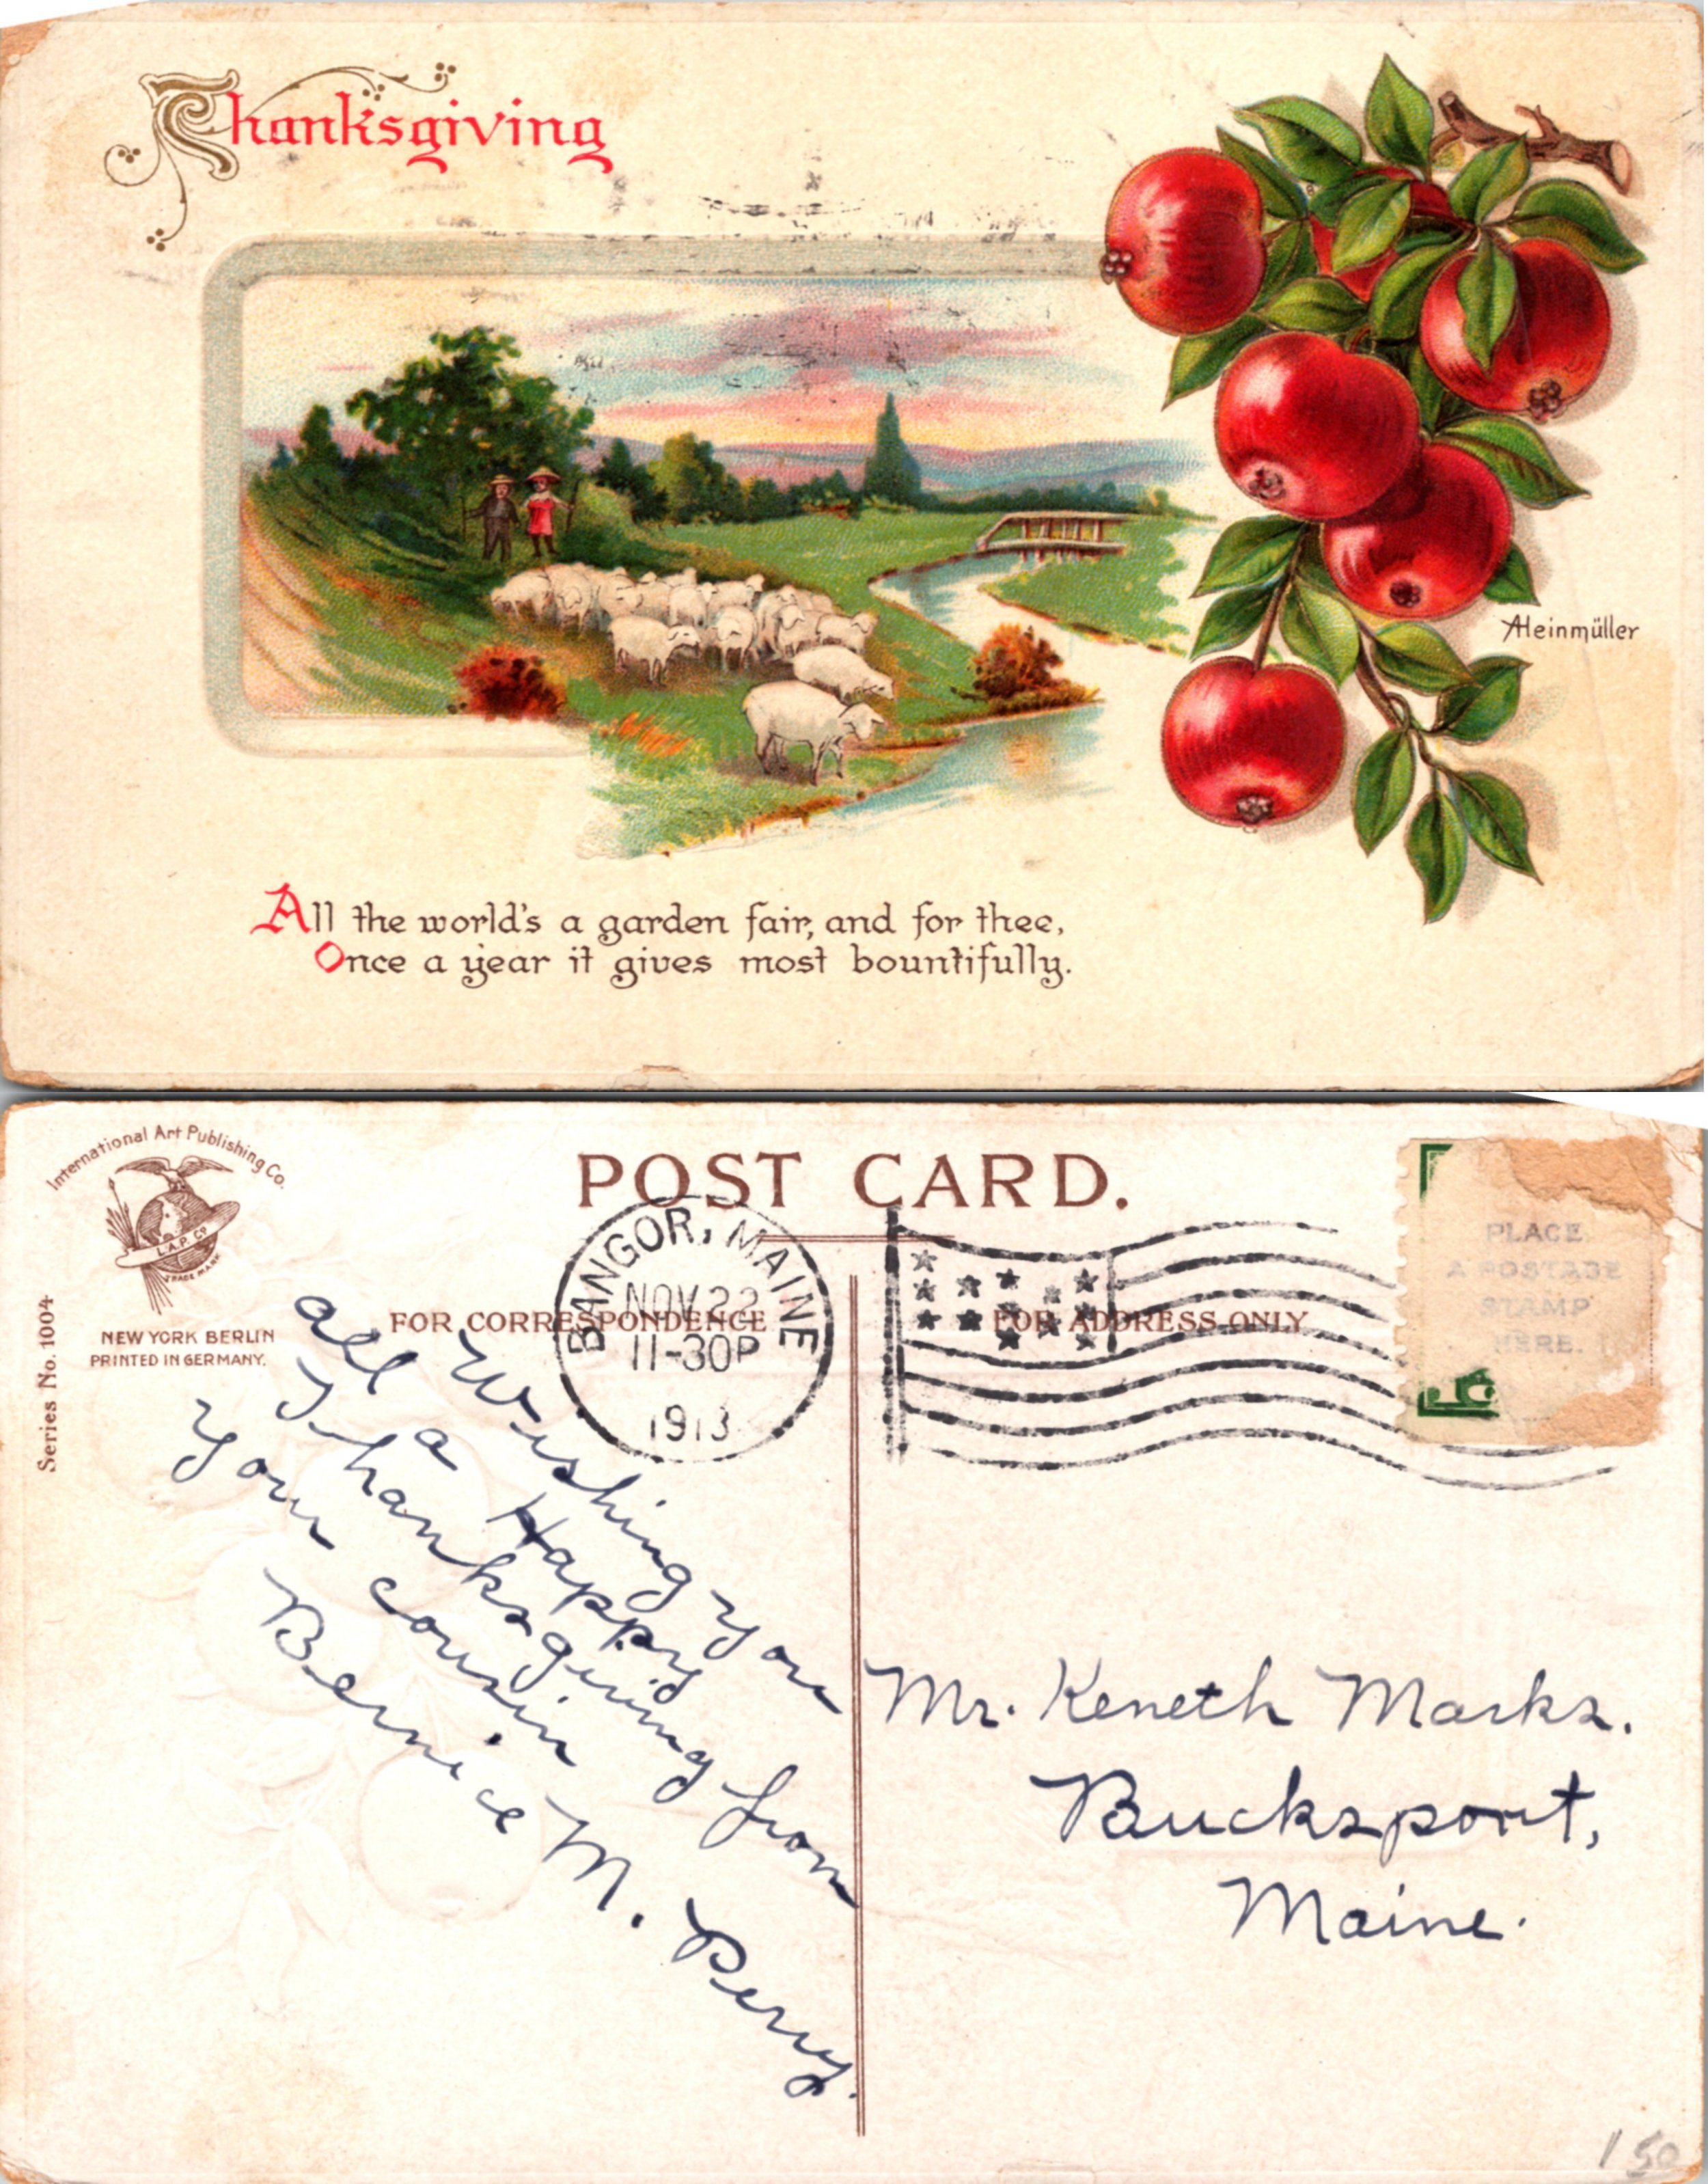 Thanksgiving
AHeinmüller
All the world's a garden fair, and for thee,
Once a year it gives most bountifully.
International Art Publishing Co.
I.A.P. Co
TRADE MARK
NEW YORK BERLIN
PRINTED IN GERMANY.
Series No. 1004
POST CARD.
FOR CORRESPONDENCE
FOR ADDRESS ONLY
BANGOR, MAINE
NOV 22
11-30P
1913
PLACE
A POSTAGE
STAMP
HERE.
Wishing you
all a Happy
Thanksgiving from
your cousin
Bernice M. Perry.
Mr. Keneth Marks.
Bucksport,
Maine.
150